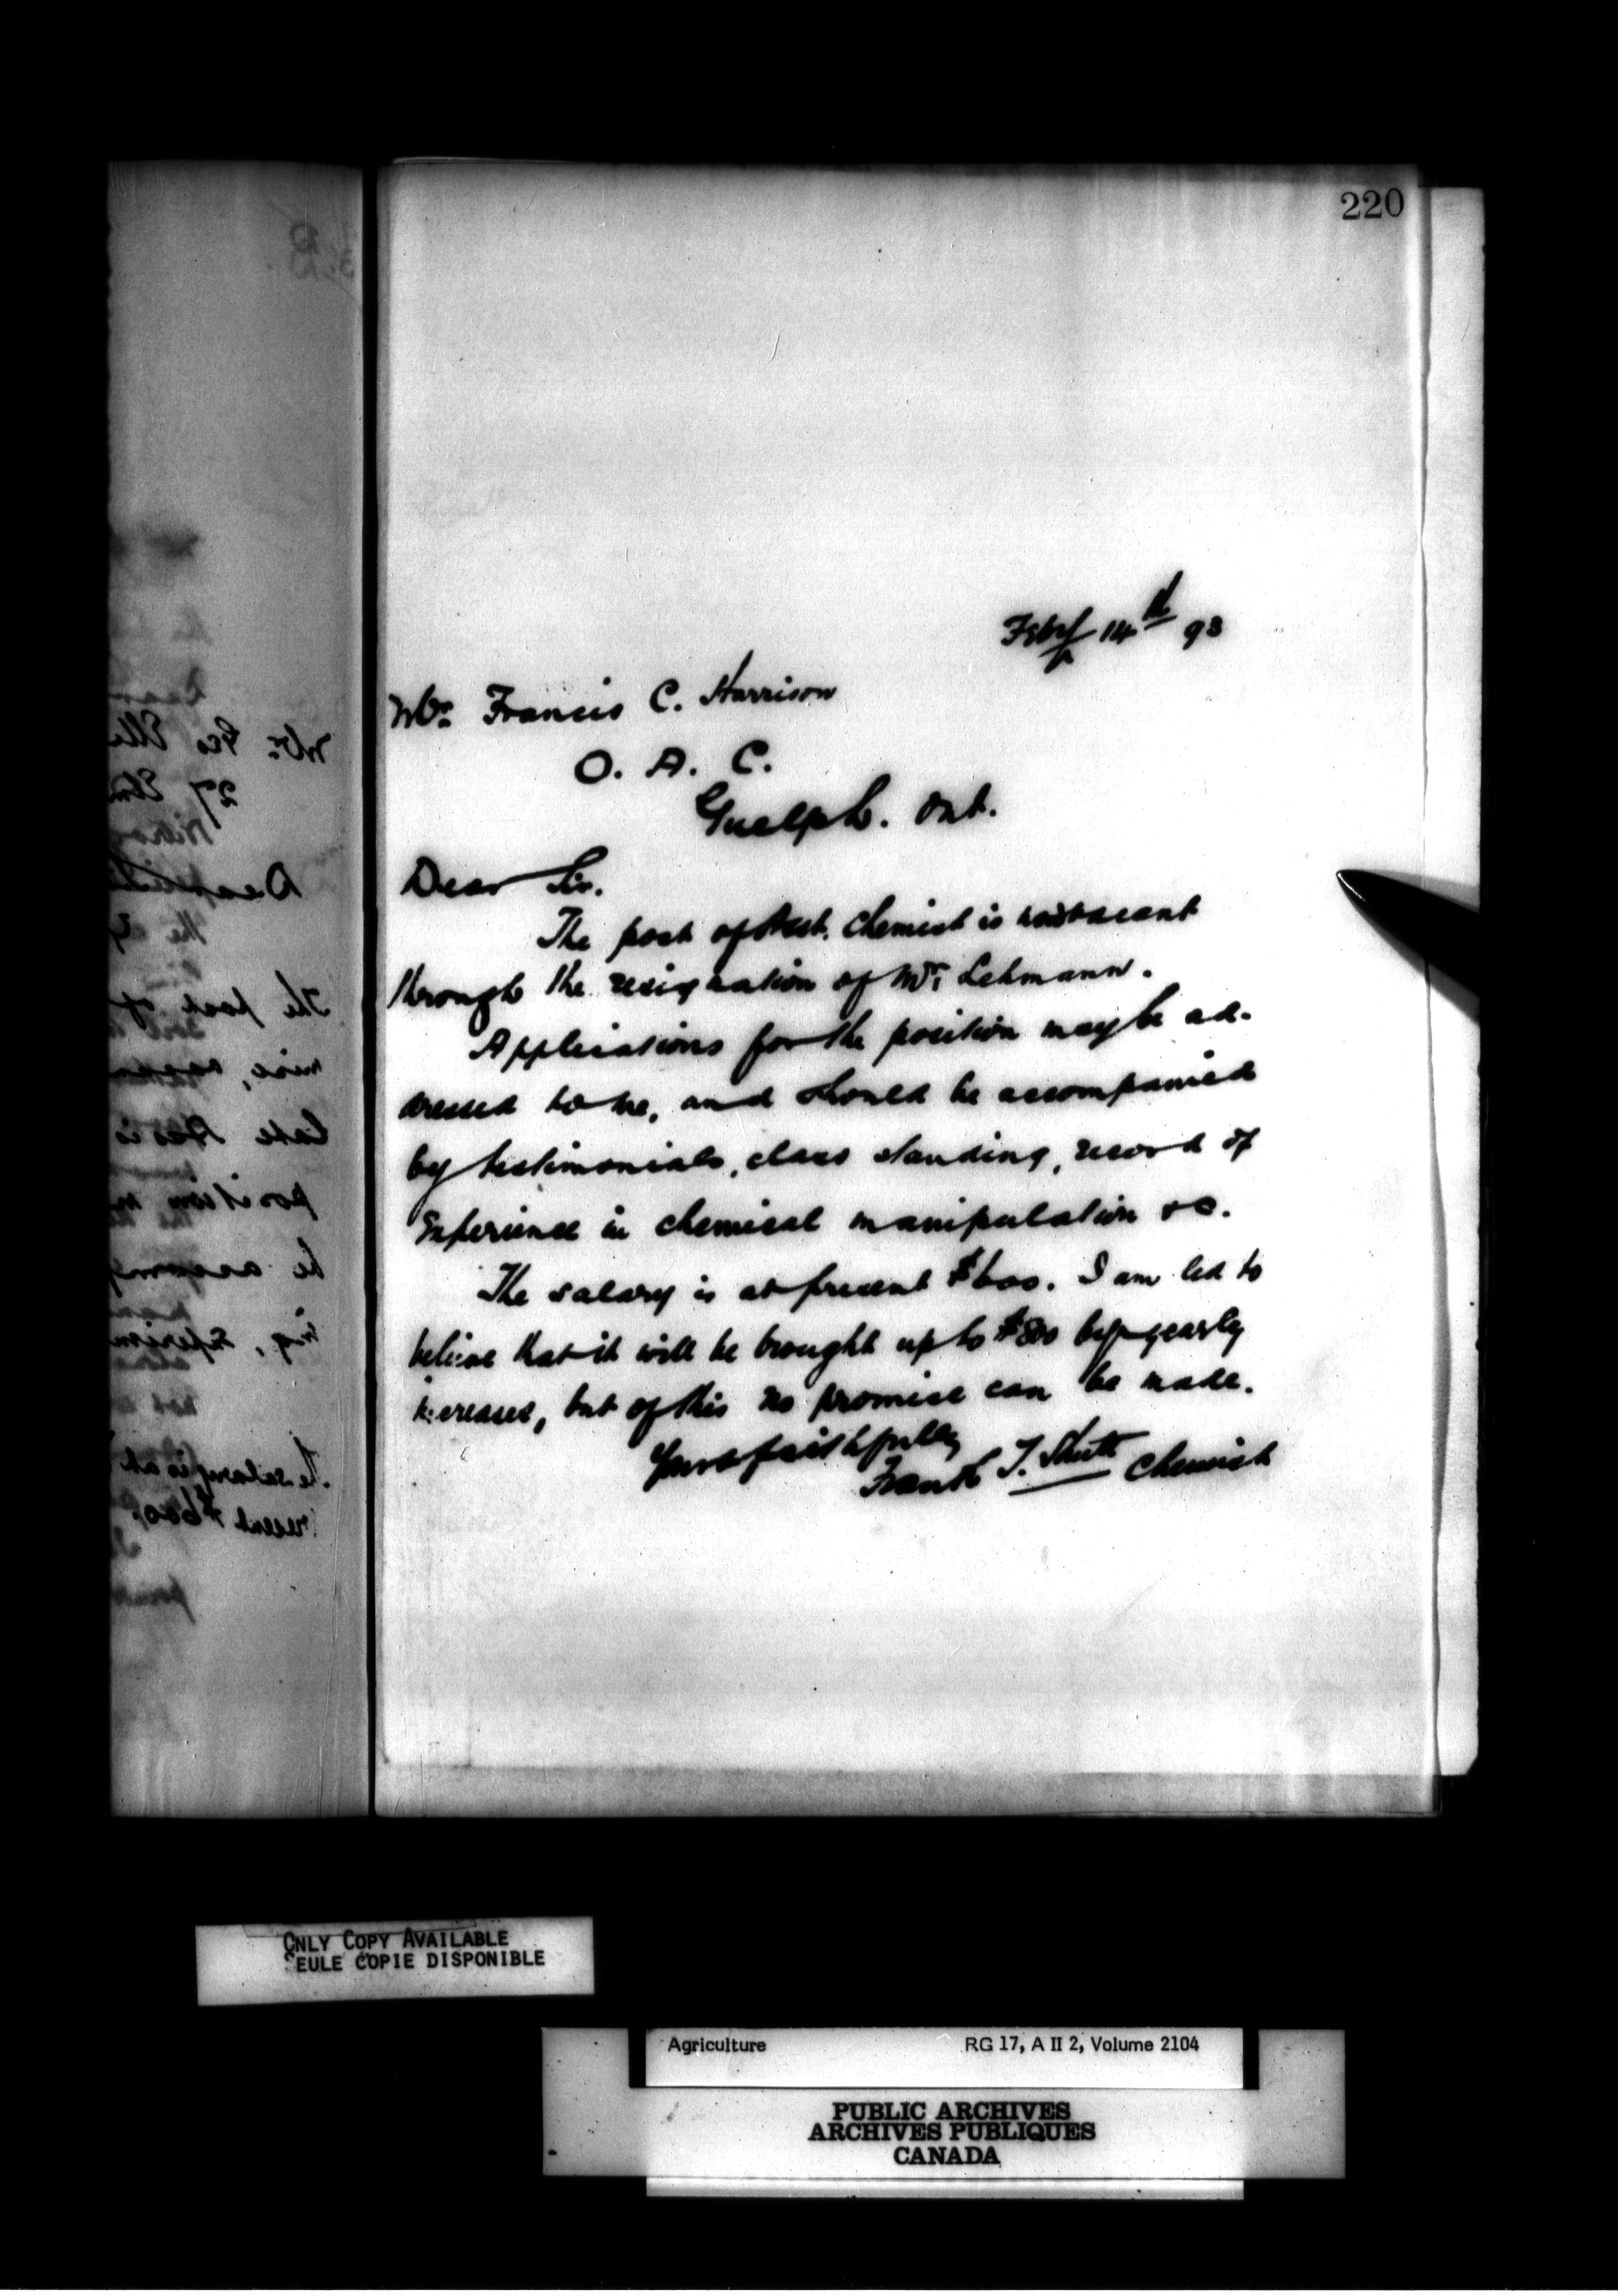 220
Feby 14th 93
Mr. Francis C. Harrison
O. A. C.
Guelph. Ont.
Dear Sir.
The post of Asst. Chemist is now vacant
through the resignation of Mr. Lehmann.
Applications for the position may be ad-
dressed to me, and should be accompanied
by testimonials, class standing, record of
experience in chemical manipulation &c.
The salary is at present $600. I am led to
believe that it will be brought up to $800 by yearly
increases, but of this no promise can be made.
Yours faithfully
Frank T. Shutt Chemist
ONLY COPY AVAILABLE
SEULE COPIE DISPONIBLE
Agriculture RG 17, A II 2, Volume 2104
PUBLIC ARCHIVES
ARCHIVES PUBLIQUES
CANADA